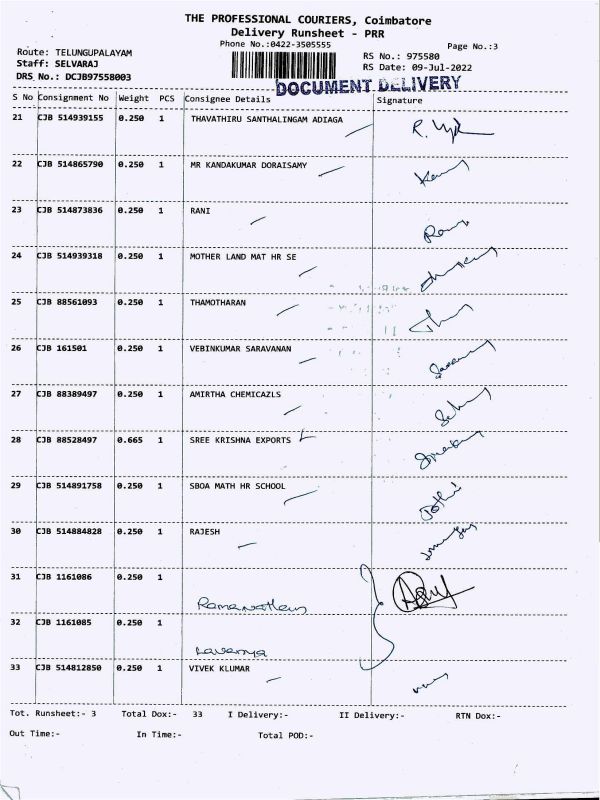 THE PROFESSIONAL COURIERS, Coimbatore
Delivery Runsheet - PRR
Phone No.:0422-3505555
Page No.:3
Route: TELUNGUPALAYAM
RS No.: 975580
Staff: SELVARAJ
RS Date: 09-Jul-2022
DRS No.: DCJB97558003
DOCUMENT DELIVERY
S No Consignment No Weight PCS Consignee Details Signature
21 CJB 514939155 0.250 1 THAVATHIRU SANTHALINGAM ADIAGA
22 CJB 514865790 0.250 1 MR KANDAKUMAR DORAISAMY
23 CJB 514873836 0.250 1 RANI
24 CJB 514939318 0.250 1 MOTHER LAND MAT HR SE
25 CJB 88561093 0.250 1 THAMOTHARAN
26 CJB 161501 0.250 1 VEBINKUMAR SARAVANAN
27 CJB 88389497 0.250 1 AMIRTHA CHEMICAZLS
28 CJB 88528497 0.665 1 SREE KRISHNA EXPORTS
29 CJB 514891758 0.250 1 SBOA MATH HR SCHOOL
30 CJB 514884828 0.250 1 RAJESH
31 CJB 1161086 0.250 1
32 CJB 1161085 0.250 1
Lavanya
33 CJB 514812850 0.250 1 VIVEK KLUMAR
Tot. Runsheet:- 3 Total Dox:- 33 I Delivery:- II Delivery:- RTN Dox:-
Out Time:- In Time:- Total POD:-